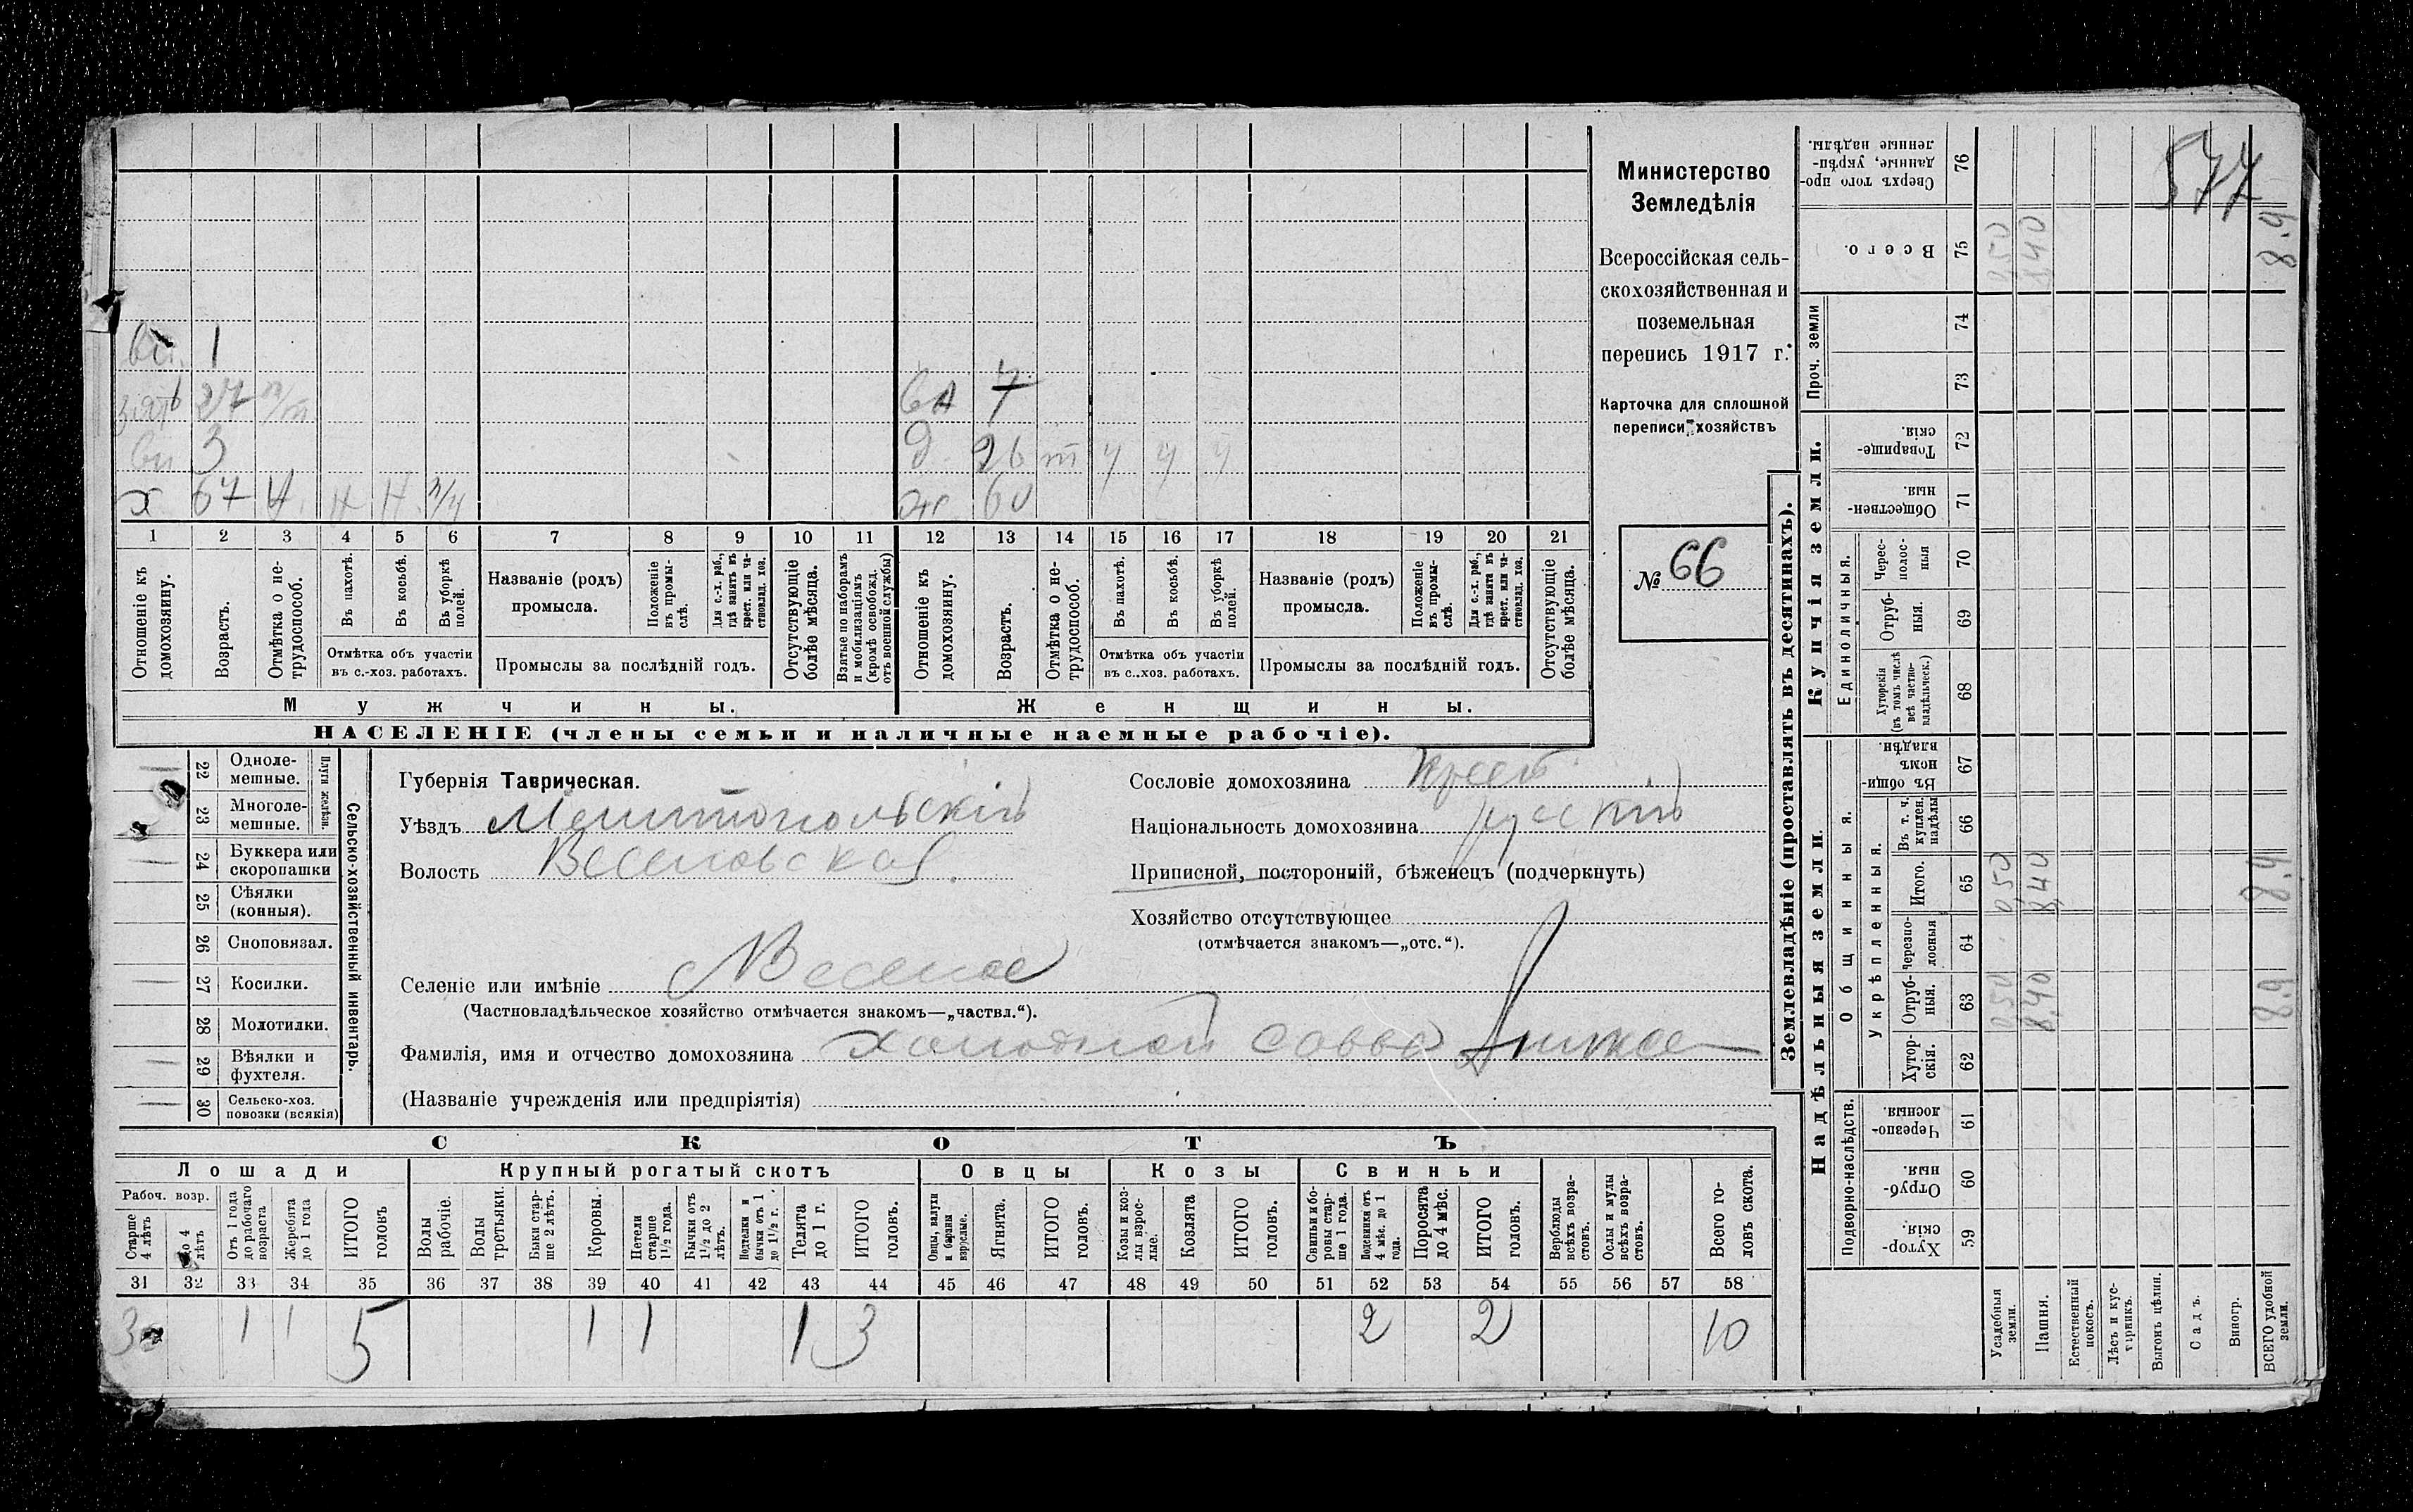 вн. 1
зять 27 п/т вн 7
вн 3 д. 26 т ч ч ч
х 67 Н. Н Н п/ч ж. 60
1 2 3 4 5 6 7 8 9 10 11 12 13 14 15 16 17 18 19 20 21
Отношеніе къ домохозяину.
Возрастъ.
Отмѣтка о не-
трудоспособ.
Въ пахотѣ.
Въ косьбѣ.
Въ уборкѣ полей.
Отмѣтка объ участіи
въ с.-хоз. работахъ.
Названіе (родъ)
промысла.
Положеніе
въ промы-
слѣ.
Для с.-х. раб.,
гдѣ занятъ въ
крест. или ча-
стновлад. хоз.
Промыслы за послѣдній годъ.
Отсутствующіе
болѣе мѣсяца.
Взятые по наборамъ
и мобилизаціямъ
(кромѣ освобожд.
отъ военной службы)
Отношеніе къ
домохозяину.
Возрастъ.
Отмѣтка о не-
трудоспособ.
Въ пахотѣ.
Въ косьбѣ.
Въ уборкѣ
полей.
Отмѣтка объ участіи
въ с..хоз. работахъ.
Названіе (родъ)
промысла.
Положеніе
въ промы-
слѣ.
Для с.-х. раб.,
гдѣ занята въ
крест. или ча-
стновлад. хоз.
Промыслы за послѣдній годъ.
Отсутствующіе
болѣе мѣсяца.
Мужчины. Женщины.
НАСЕЛЕНІЕ (члены семьи и наличные наемные рабочіе).
Министерство
Земледѣлія
Всероссійская сель-
скохозяйственная и
поземельная
перепись 1917 г.
Карточка для сплошной
переписи хозяйствъ
№ 66
22 Одноле-
мешные.
23 Многоле-
мешные.
Плуги желѣзн.
24 Буккера или
скоропашки
25 Сѣялки
(конныя).
26 Сноповязал.
27 Косилки.
28 Молотилки.
29 Вѣялки и
фухтеля.
30 Сельско-хоз.
повозки (всякія)
Сельско-хозяйственный инвентарь.
Губернія Таврическая.
Уѣздъ Мелитопольскій
Волость Веселовская.
Селеніе или имѣніе Веселое
(Частновладѣльческое хозяйство отмѣчается знакомъ—„частвл.“).
Фамилія, имя и отчество домохозяина Холодной Савва
(Названіе учрежденія или предпріятія)
Сословіе домохозяина Крест
Національность домохозяина русскій
Приписной, посторонній, бѣженецъ (подчеркнуть)
Хозяйство отсутствующее
(отмѣчается знакомъ—„отс.“).
СКОТЪ
Лошади Крупный рогатый скотъ Овцы Козы Свиньи
Рабоч. возр.
Старше
4 лѣтъ
до 4
лѣтъ
Отъ 1 года
до рабочаго
возраста
Жеребята
до 1 года
ИТОГО
головъ
Волы
рабочіе.
Волы
третьяки.
Быки стар-
ше 2 лѣтъ.
Коровы.
Нетели
старше
1½ года.
Бычки отъ
1½ до 2
лѣтъ.
Подтелки и
бычки отъ 1
до 1½ г.
Телята
до 1 г.
ИТОГО
головъ.
Овцы, валухи
и бараны
взрослые.
Ягнята.
ИТОГО
головъ.
Козы и коз-
лы взрос-
лые.
Козлята
ИТОГО
головъ.
Свиньи и бо-
ровы стар-
ше 1 года.
Подсвинки отъ
4 мѣс. до 1
года.
Поросята
до 4 мѣс.
ИТОГО
головъ.
Верблюды
всѣхъ возра-
стовъ.
Ослы и мулы
всѣхъ возра-
стовъ.
Всего го-
ловъ скота.
31 32 33 34 35 36 37 38 39 40 41 42 43 44 45 46 47 48 49 50 51 52 53 54 55 56 57 58
3 1 1 5 1 1 1 3 2 2 10
Землевладѣніе (проставлять въ десятинахъ).
577
Сверхъ того про-
данные, укрѣп-
ленные надѣлы.
76
Всего. 75 0,50 8,40 8.9
Проч. земли
74
73
Купчія земли.
Товарище-
скія.
72
Обществен-
ныя.
71
Единоличныя.
Черес-
полос-
ныя
70
Отруб-
ныя.
69
Хуторскія
(въ томъ числѣ
всѣ частно-
владѣльческ.)
68
Надѣльныя земли.
Общинныя.
Въ общи-
номъ
владѣн.
67
Укрѣпленныя.
Въ т. ч.
куплен.
надѣлы
66
Итого. 65 0,50 8,40 8.9
Черезпо-
лосныя
64
Отруб-
ныя.
63 0,50 8,40 8.9
Хутор-
скія.
62
Подворно-наслѣдств.
Черезпо-
лосныя.
61
Отруб-
ныя.
60
Хутор-
скія.
59
Усадебныя
земли.
Пашня.
Естественный
покосъ.
Лѣсъ и кус-
тарникъ.
Выгонъ цѣлин.
Садъ.
Виногр.
ВСЕГО удобной
земли.